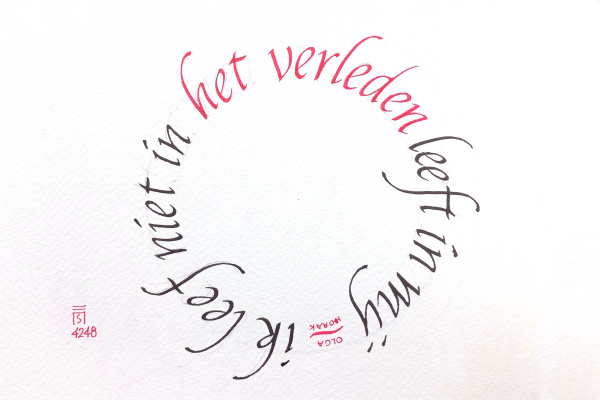 ik leef niet in het verleden leeft in mij
OLGA
HORAK
S
4248